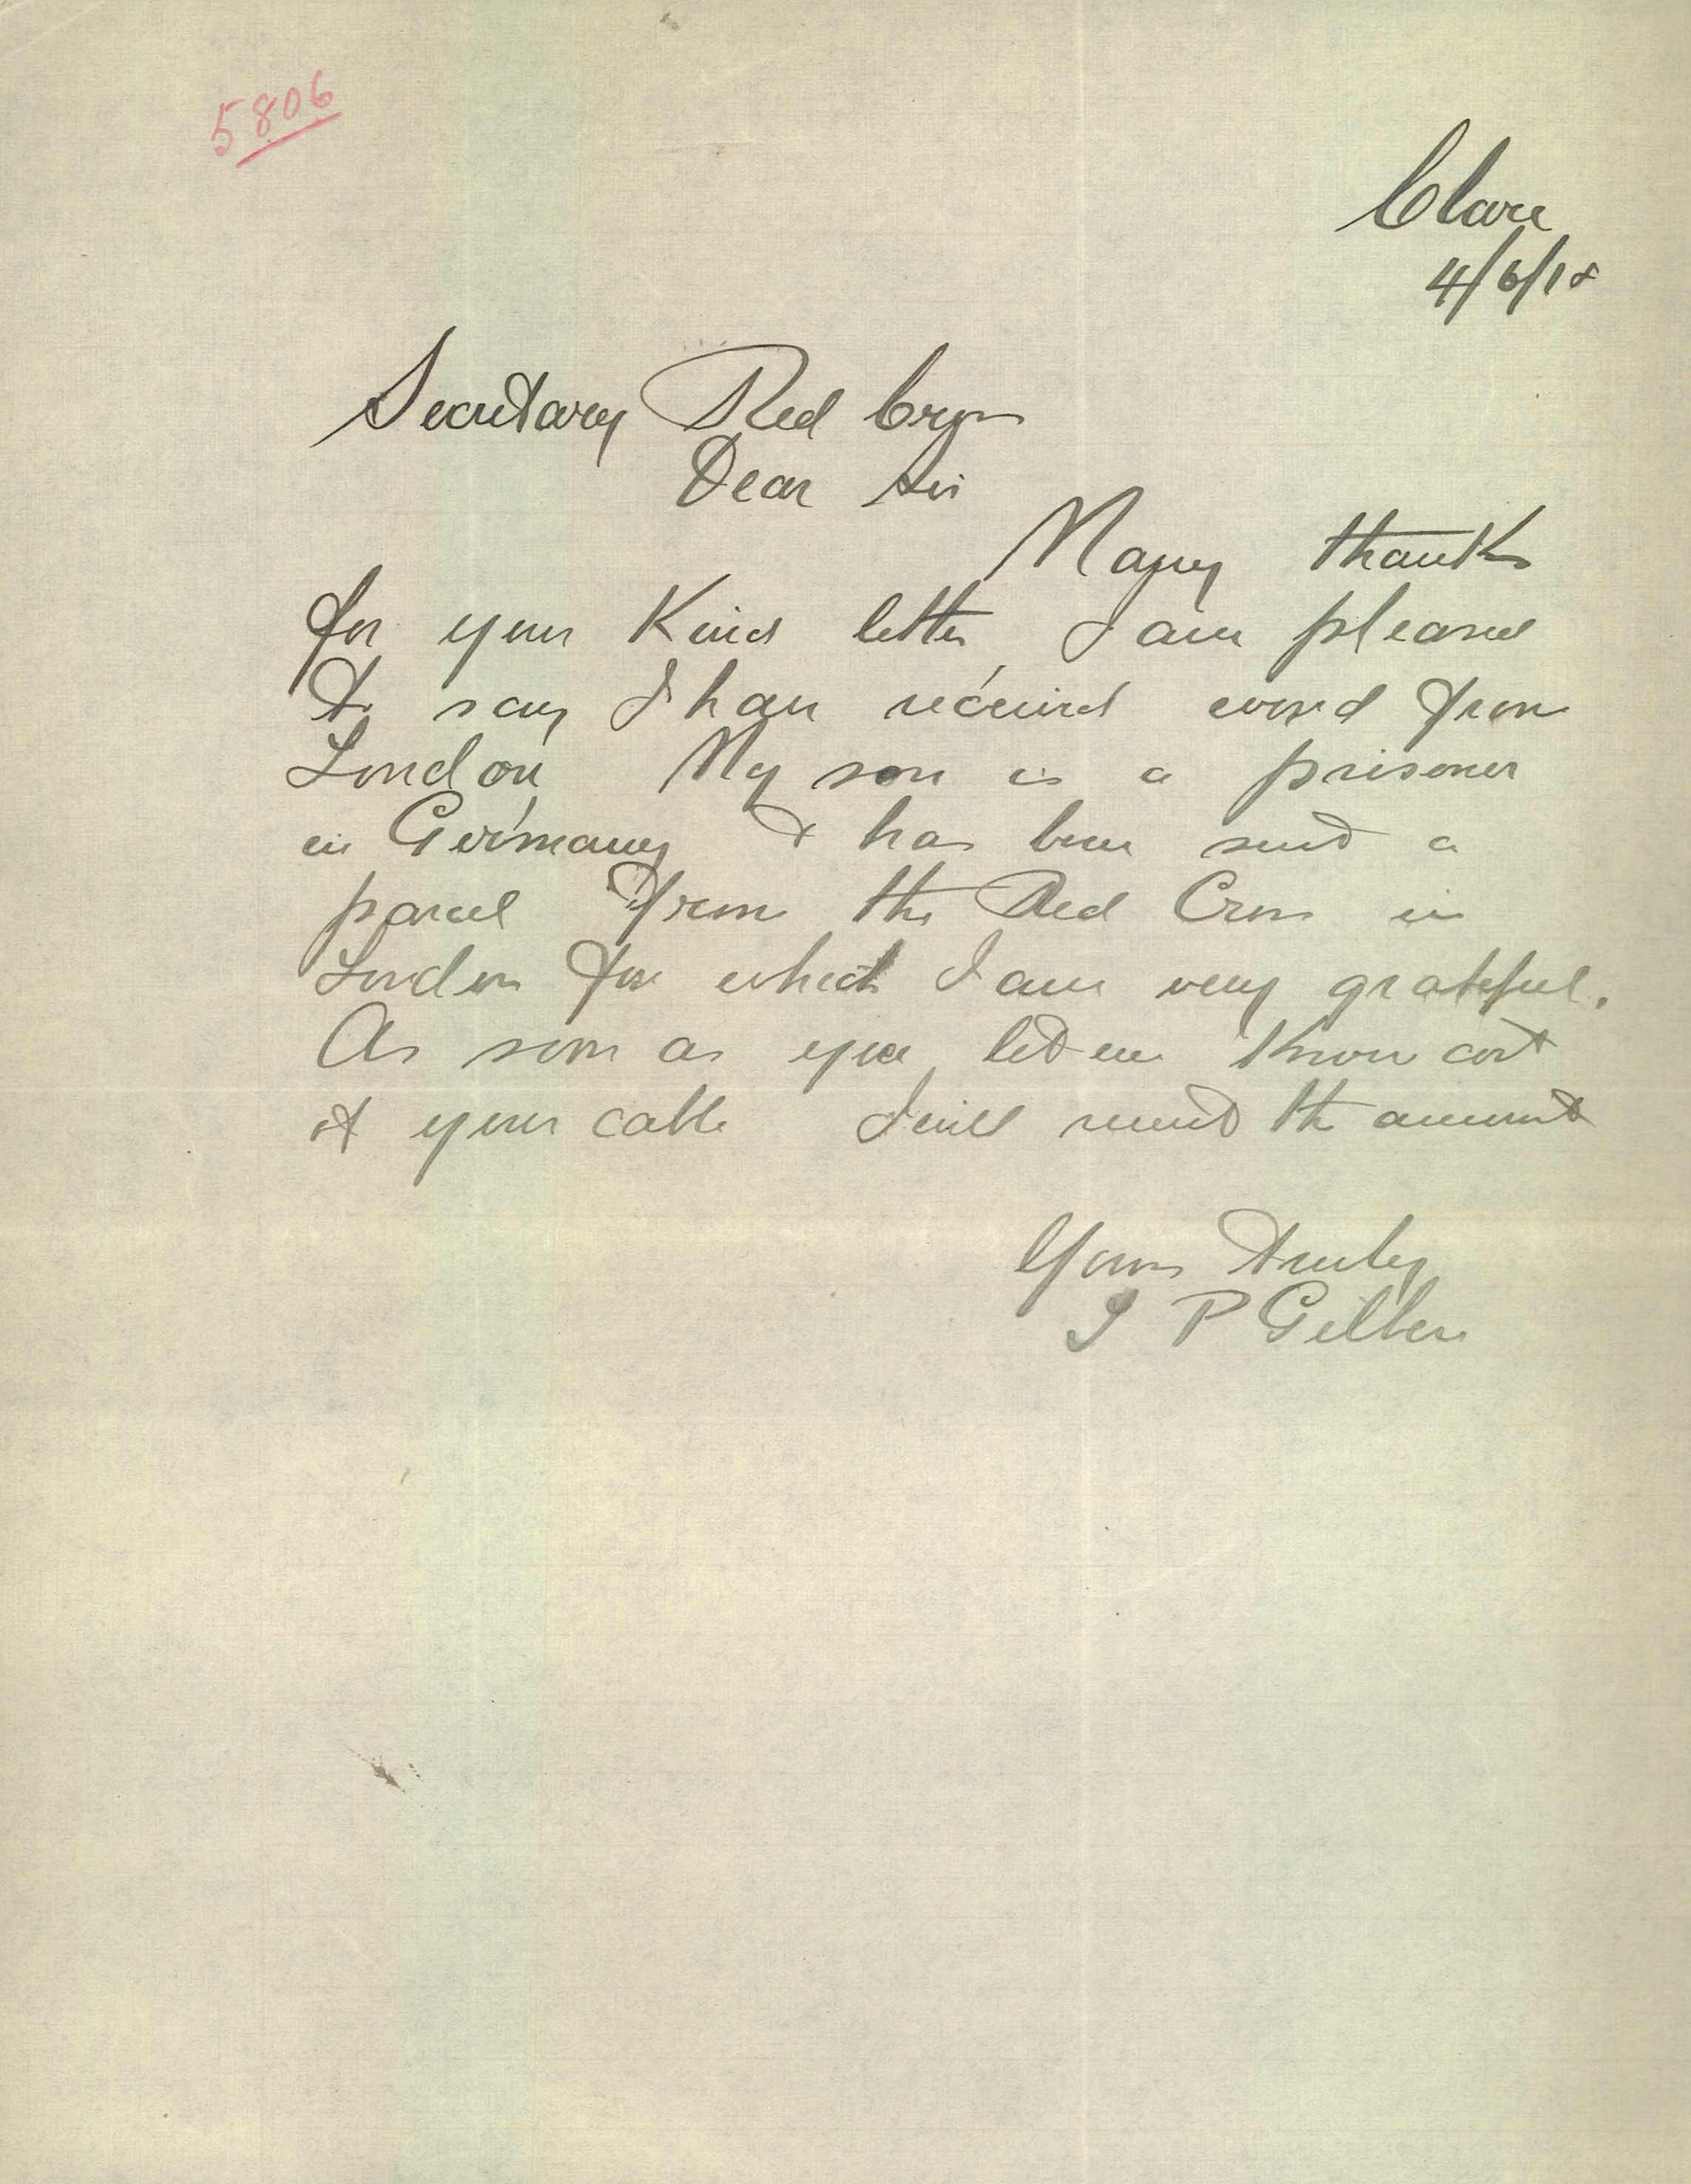 5806
Clare
4/6/18
Secretary Red Cross
Dear Sir
Many thanks
for your Kind letter I am pleased
to say I have received word from
London My son is a prisoner
in Germany & has been sent a
parcel from the Red Cross in
London for which I am very grateful.
As soon as you let me know cost
of your cable I will remit the amount
Yours truly
P